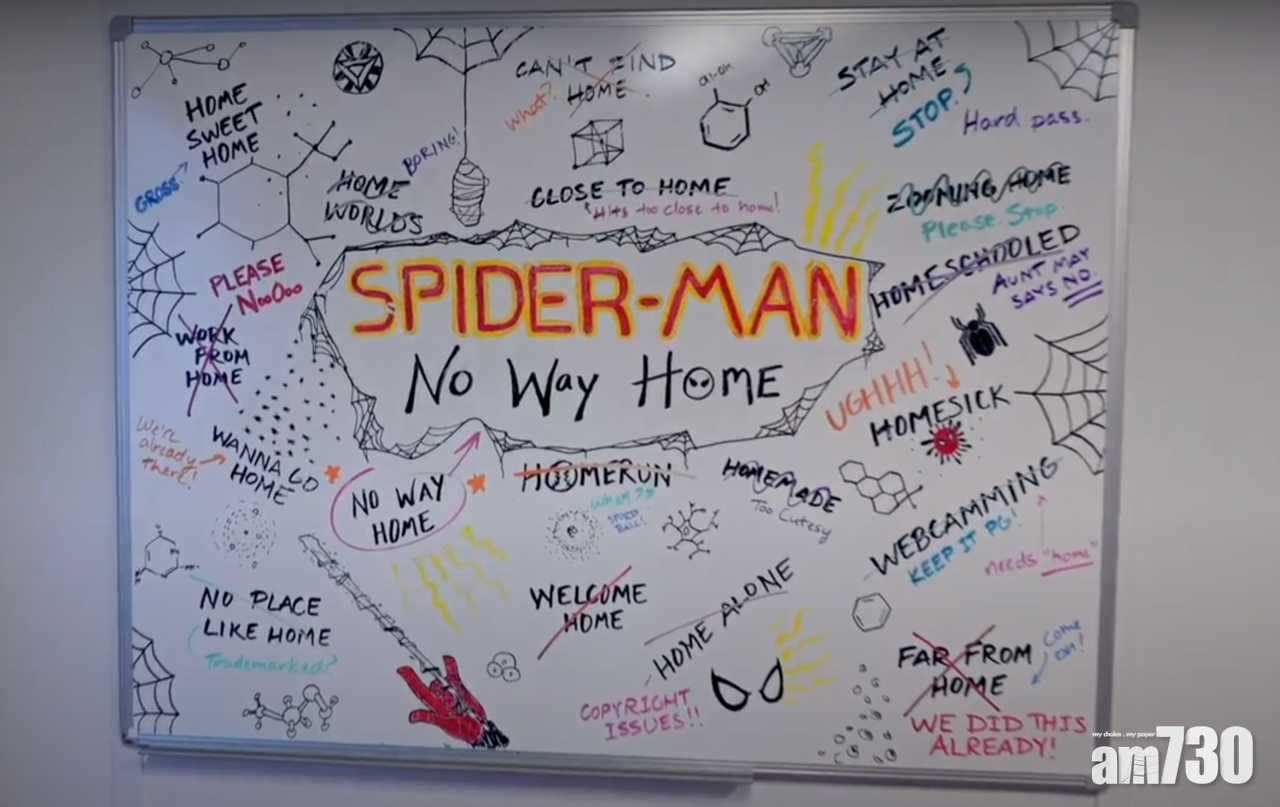 HOME
SWEET
HOME
GROSS
HOME
WORLDS
BORING!
CAN'T FIND
HOME
What?
al-oh
OH
STAY AT
HOME
STOP.
Hard pass.
CLOSE TO HOME
Hits too close to home!
ZOOMING HOME
Please. Stop.
HOMESCHOOLED
AUNT MAY
SAYS NO.
PLEASE
NooOoo
WORK
FROM
HOME
SPIDER-MAN
No Way Home
UGHHH!
HOMESICK
We're
already
there!
WANNA GO
HOME
NO WAY
HOME
HOOMERUN
What??
SPIDER
BALL!
HOMEMADE
Too Cutesy
WEBCAMMING
KEEP IT PG!
needs "home"
NO PLACE
LIKE HOME
Trademarked?
WELCOME
HOME
HOME ALONE
COPYRIGHT
ISSUES!!
FAR FROM
HOME
Come
on!
WE DID THIS
ALREADY!
my choice . my paper
am730